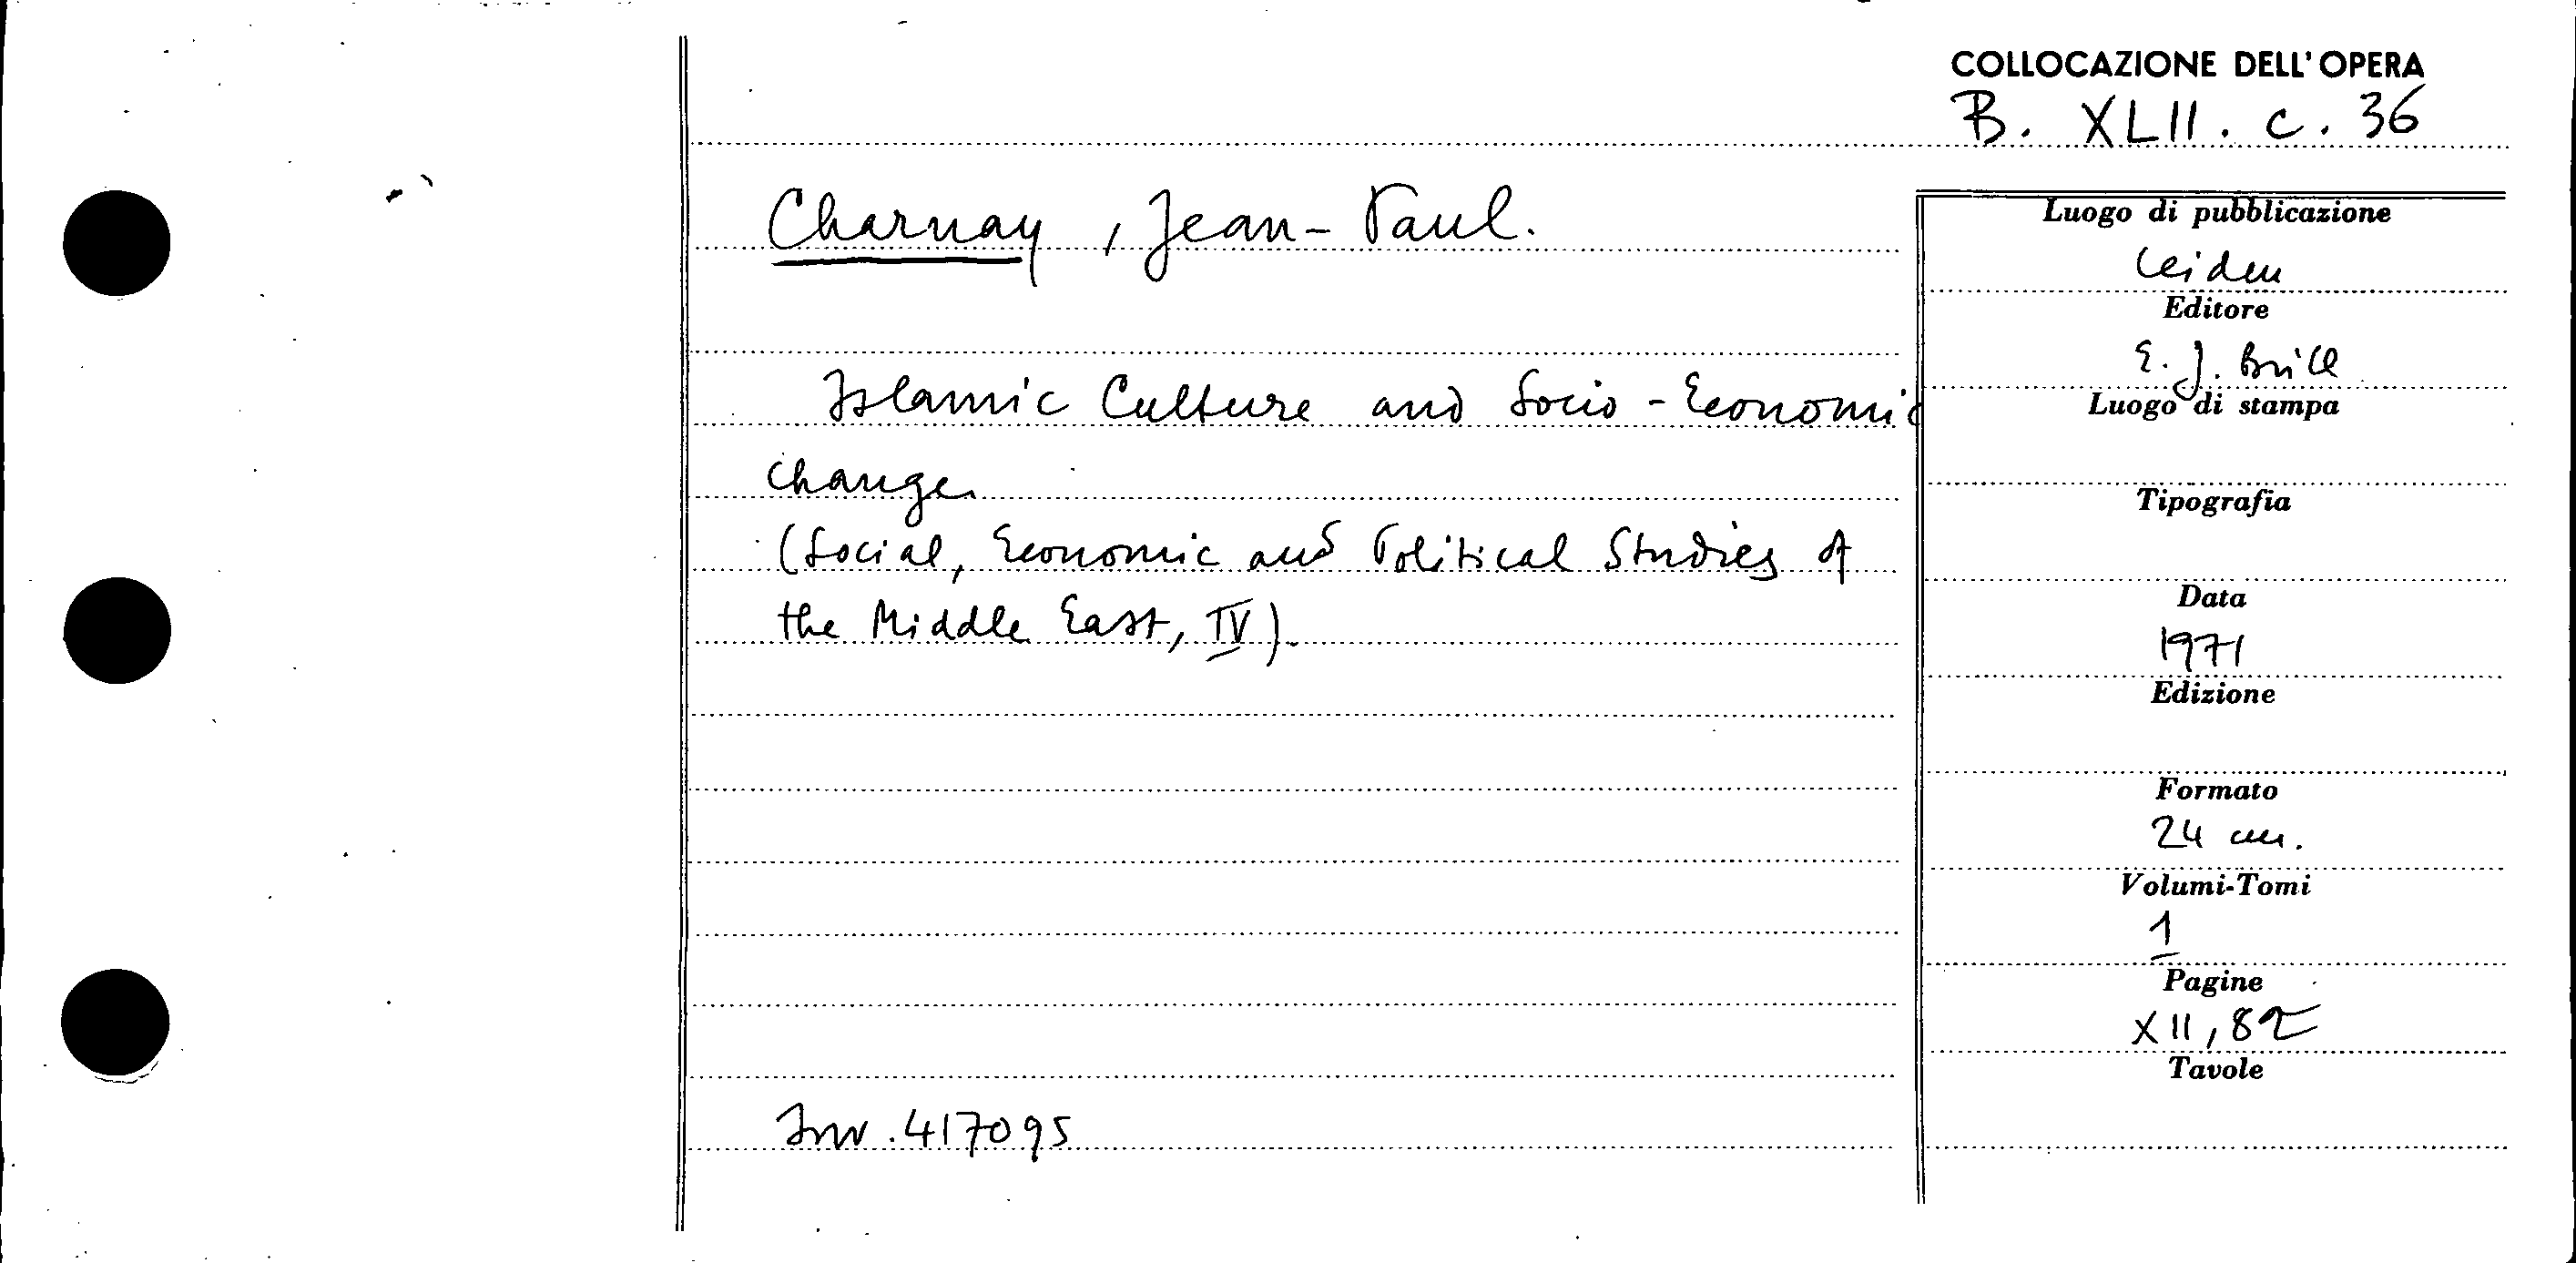 COLLOCAZIONE DELL'OPERA
B. XLII. c. 36
Charnay, Jean-Paul.
Islamic Culture and Socio-Economic
Change.
(Social, Economic and Political Studies of
the Middle East, IV).
Inv. 417095
Luogo di pubblicazione
Leiden
Editore
E. J. Brill
Luogo di stampa
Tipografia
Data
1971
Edizione
Formato
24 cm.
Volumi-Tomi
1
Pagine
XII, 82
Tavole